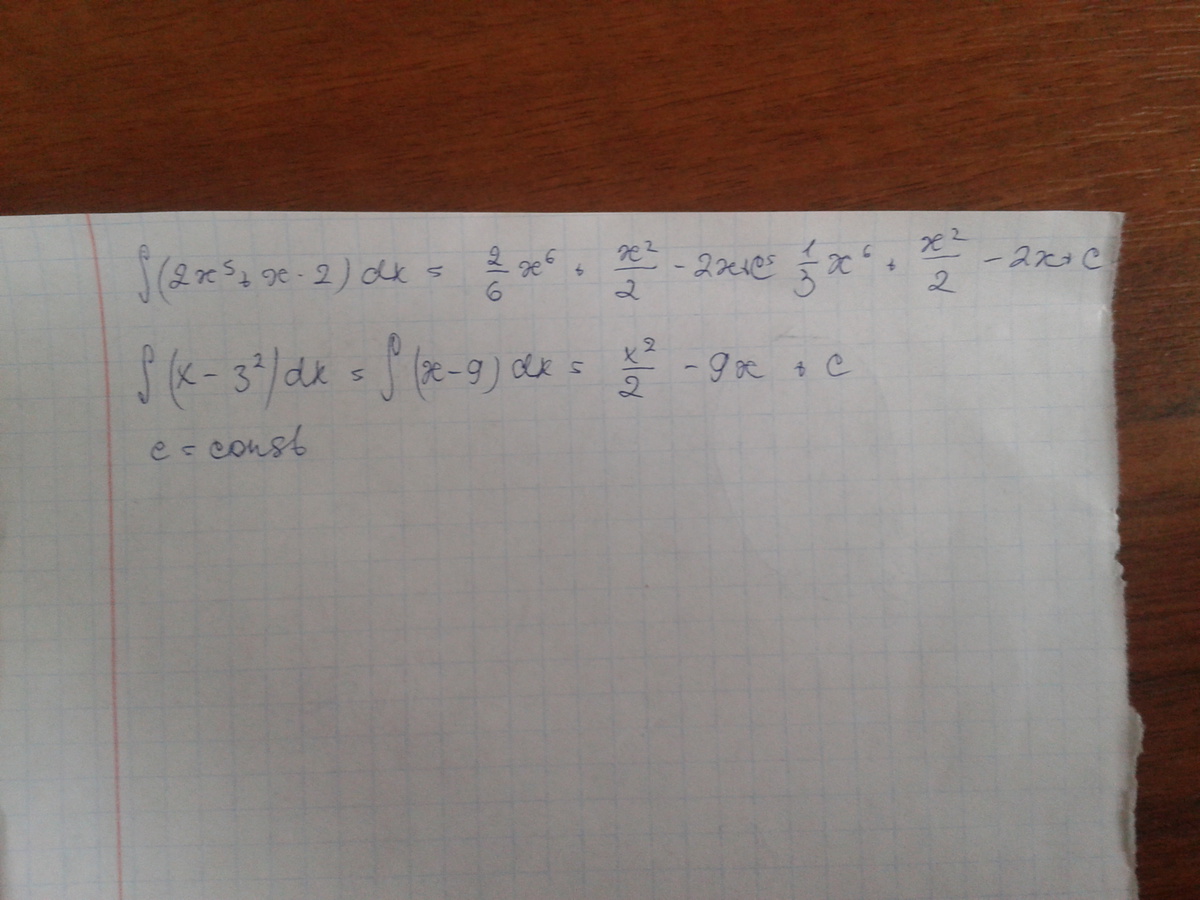 ∫(2x⁵+x-2)dx = 2/6 x⁶ + x²/2 - 2x+c = 1/3 x⁶ + x²/2 - 2x+c
∫(x-3²)dx = ∫(x-9)dx = x²/2 - 9x + c
c = const